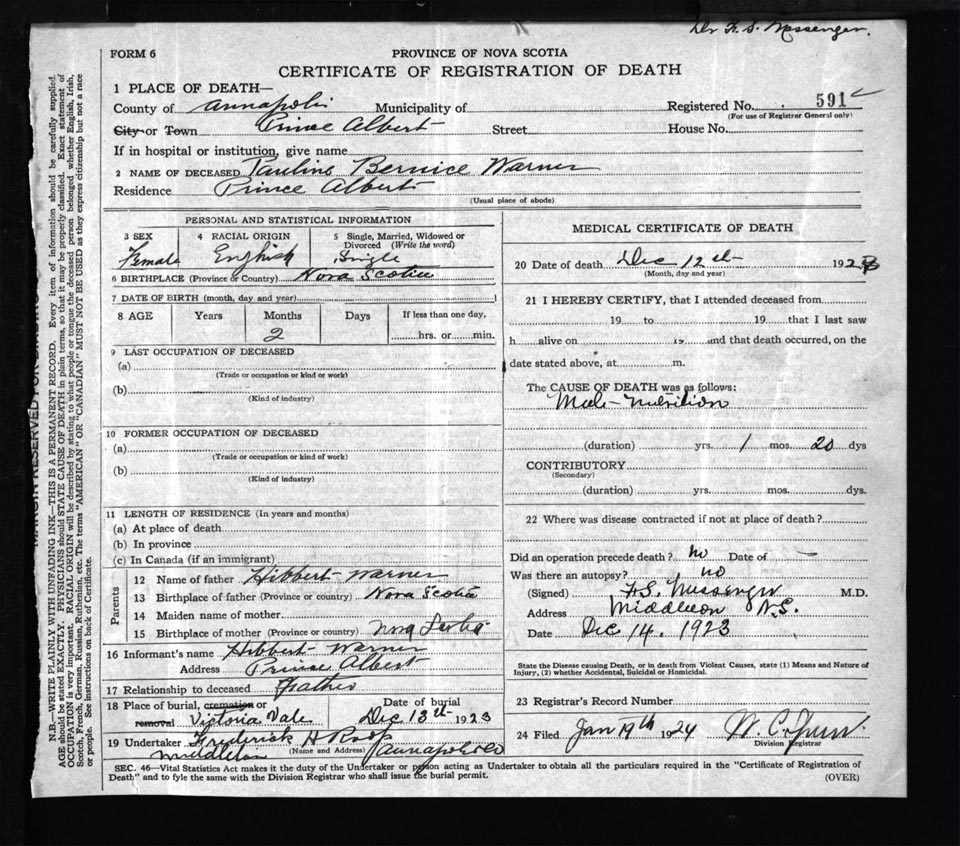 Dr F. S. Messenger.
FORM 6
PROVINCE OF NOVA SCOTIA
CERTIFICATE OF REGISTRATION OF DEATH
1 PLACE OF DEATH—
County of Annapolis Municipality of Registered No. 591
(For use of Registrar General only)
City or Town Prince Albert Street House No.
If in hospital or institution, give name
2 NAME OF DECEASED Pauline Bernice Warner
Residence Prince Albert
(Usual place of abode)
PERSONAL AND STATISTICAL INFORMATION
3 SEX 4 RACIAL ORIGIN 5 Single, Married, Widowed or Divorced (Write the word)
Female English Single
6 BIRTHPLACE (Province or Country) Nova Scotia
7 DATE OF BIRTH (month, day and year)
8 AGE Years Months Days If less than one day,
2 hrs. or min.
9 LAST OCCUPATION OF DECEASED
(a)
(Trade or occupation or kind or work)
(b)
(Kind of industry)
10 FORMER OCCUPATION OF DECEASED
(a)
(Trade or occupation or kind of work)
(b)
(Kind of industry)
11 LENGTH OF RESIDENCE (In years and months)
(a) At place of death
(b) In province
(c) In Canada (if an immigrant)
Parents
12 Name of father Hibbert Warner
13 Birthplace of father (Province or country) Nova Scotia
14 Maiden name of mother
15 Birthplace of mother (Province or country) Nova Scotia
16 Informant's name Hibbert Warner
Address Prince Albert
17 Relationship to deceased Father
18 Place of burial, cremation or Date of burial
removal Victoria Vale Dec 13th 1923
19 Undertaker Frederick H Roop
Middleton (Name and Address) Annapolis Co
MEDICAL CERTIFICATE OF DEATH
20 Date of death Dec 12th 1923
(Month, day and year)
21 I HEREBY CERTIFY, that I attended deceased from
19 to 19 that I last saw
h alive on 19 and that death occurred, on the
date stated above, at m.
The CAUSE OF DEATH was as follows:
Male-nutrition
(duration) yrs. 1 mos. 20 dys
CONTRIBUTORY
(Secondary)
(duration) yrs. mos. dys.
22 Where was disease contracted if not at place of death?
Did an operation precede death? No Date of —
Was there an autopsy? no
(Signed) F.S. Messenger M.D.
Address Middleton N.S.
Date Dec 14. 1923
State the Disease causing Death, or in death from Violent Causes, state (1) Means and Nature of
Injury, (2) whether Accidental, Suicidal or Homicidal.
23 Registrar's Record Number
24 Filed Jan 19th 1924
Division Registrar
SEC. 46—Vital Statistics Act makes it the duty of the Undertaker or person acting as Undertaker to obtain all the particulars required in the "Certificate of Registration of
Death" and to fyle the same with the Division Registrar who shall issue the burial permit. (OVER)
MARGIN RESERVED FOR BINDING
N.B.—WRITE PLAINLY WITH UNFADING INK—THIS IS A PERMANENT RECORD. Every item of information should be carefully supplied.
AGE should be stated EXACTLY. PHYSICIANS should STATE CAUSE OF DEATH in plain terms, so that it may be properly classified. Exact statement of
OCCUPATION is very important. RACIAL ORIGIN will be described by stating to what people or tongue the deceased person belonged, whether English, Irish,
Scotch, French, German, Russian, Ruthenian, etc. The terms "AMERICAN" OR "CANADIAN" MUST NOT BE USED as they express citizenship but not a race
or people. See instructions on back of Certificate.